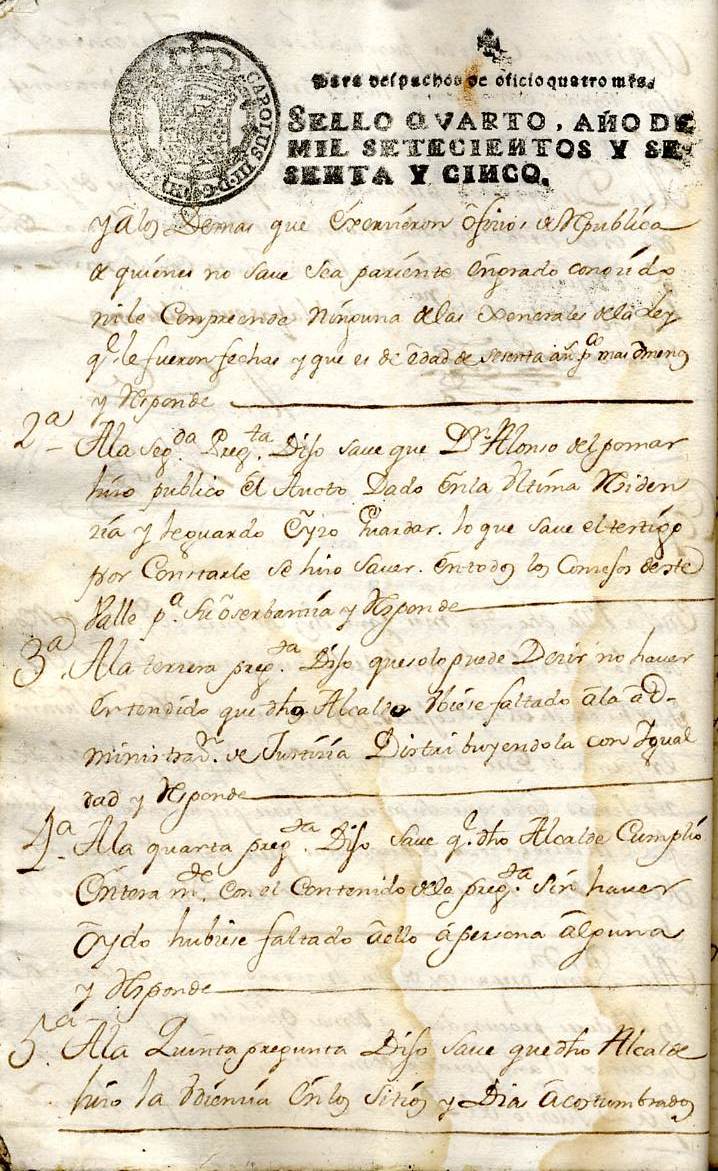 CAROLUS III D G
Para despachos de oficio quatro mrs.
SELLO QVARTO, AÑO DE
MIL SETECIENTOS Y SE-
SENTA Y CINCO.
y a los Demas que Exervieron ofizios de Republica
de quienes no save sea pariente En grado conozido
ni le Conpreende Ninguna de las Xenerales de la Ley
q.e le fueron fechas y que es de Edad de sesenta añ.s p.co mas o menos
y Responde
2ª A la seg.da Preg.ta Dijo save que D.n Alonso del pomar
hizo publico El Aucto Dado En la Ultima Residen
zia y le guardo E yzo Guardar. lo que save el testigo
por Constarle se hizo saver. En todos los Consejos de este
Valle p.a Su oserbanzia y Responde
3ª A la terzera preg.ta Dijo que solo puede Dezir no haver
Entendido que dho Alcalde Ubiese faltado a la aD-
ministraz.n de Justizia Distribuyendola con Igual
dad y Responde
4ª A la quarta preg.ta Dijo save q.e dho Alcalde Cumplio
Entera m.te con el Contenido de la preg.ta sin haver
oydo hubiese faltado a ello a persona alguna
y Responde
5ª A la Quinta pregunta Dijo save que dho Alcalde
hizo la Audienzia En los Sitios y Dias acostumbrados